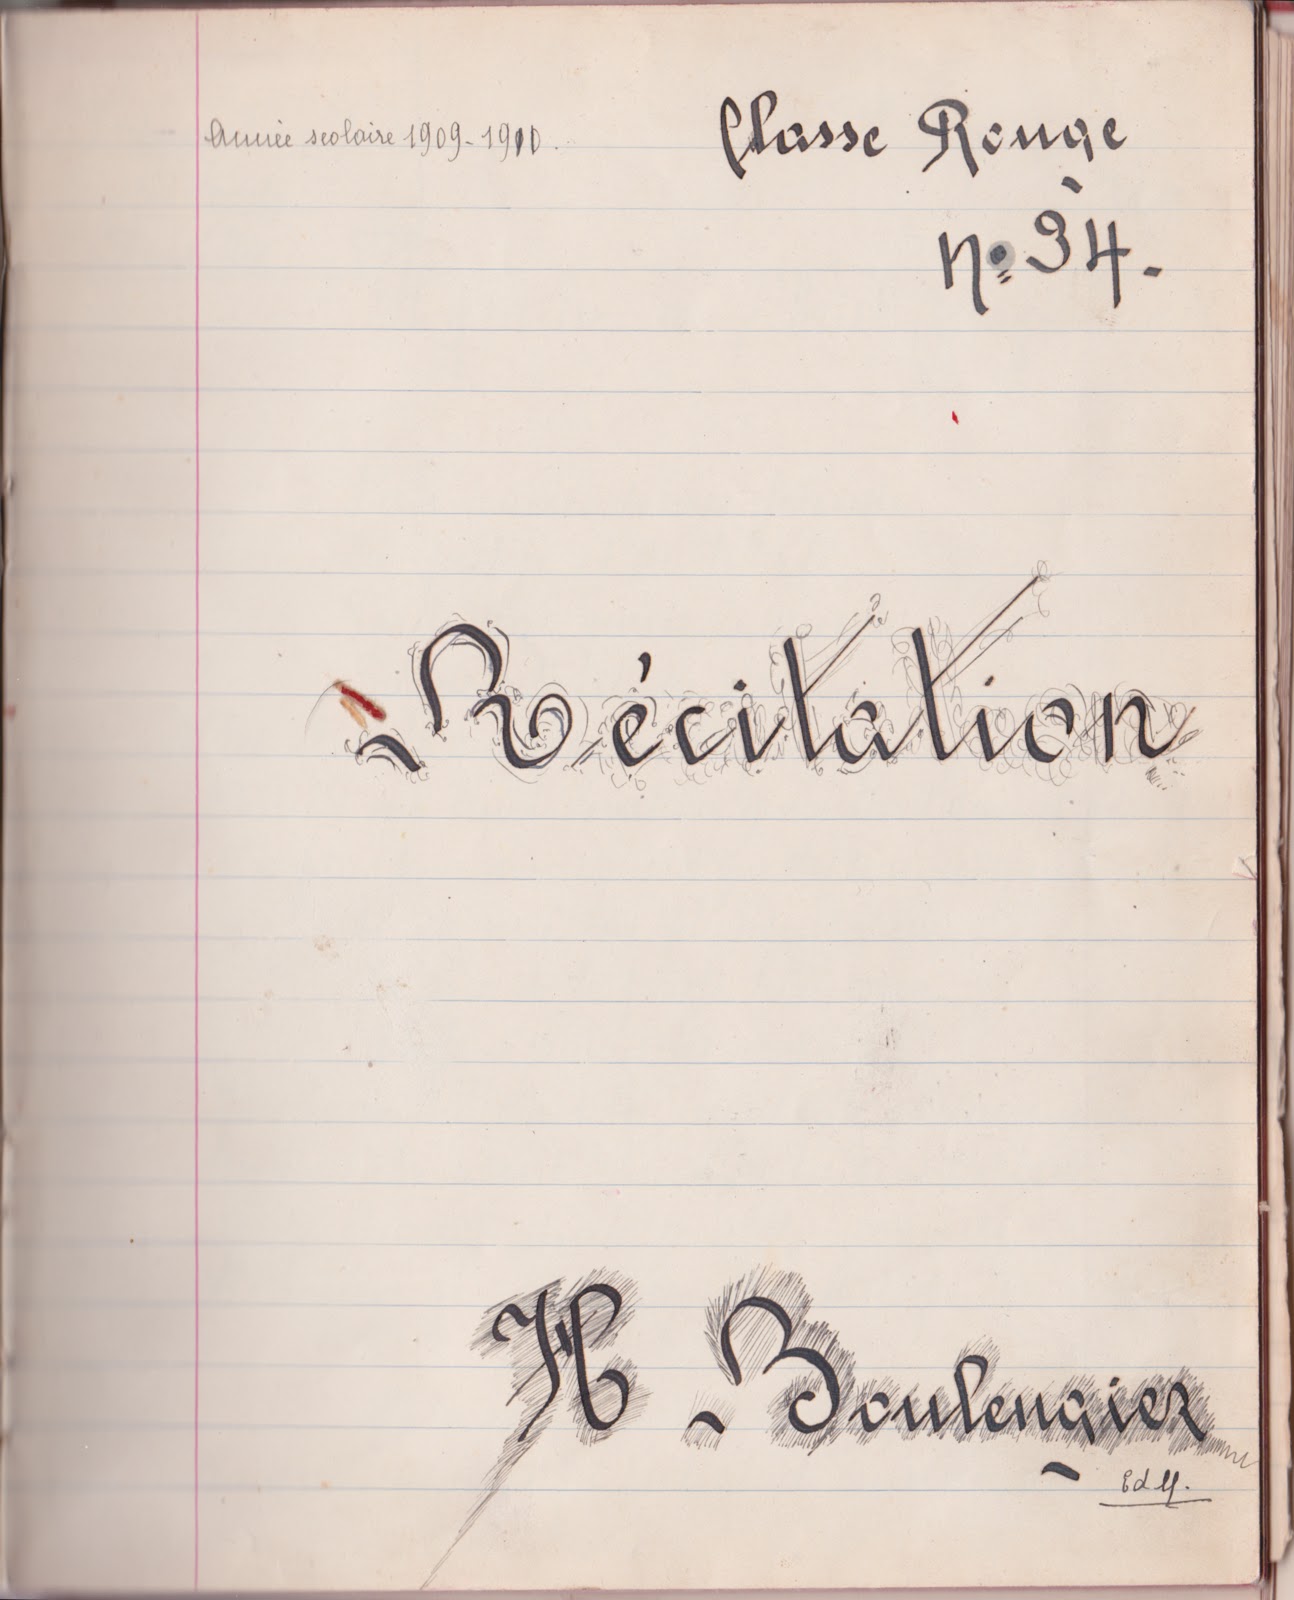 Année scolaire 1909-1910.
Classe Rouge
n° 34.
Récitation
H Boulengier
Ed M.